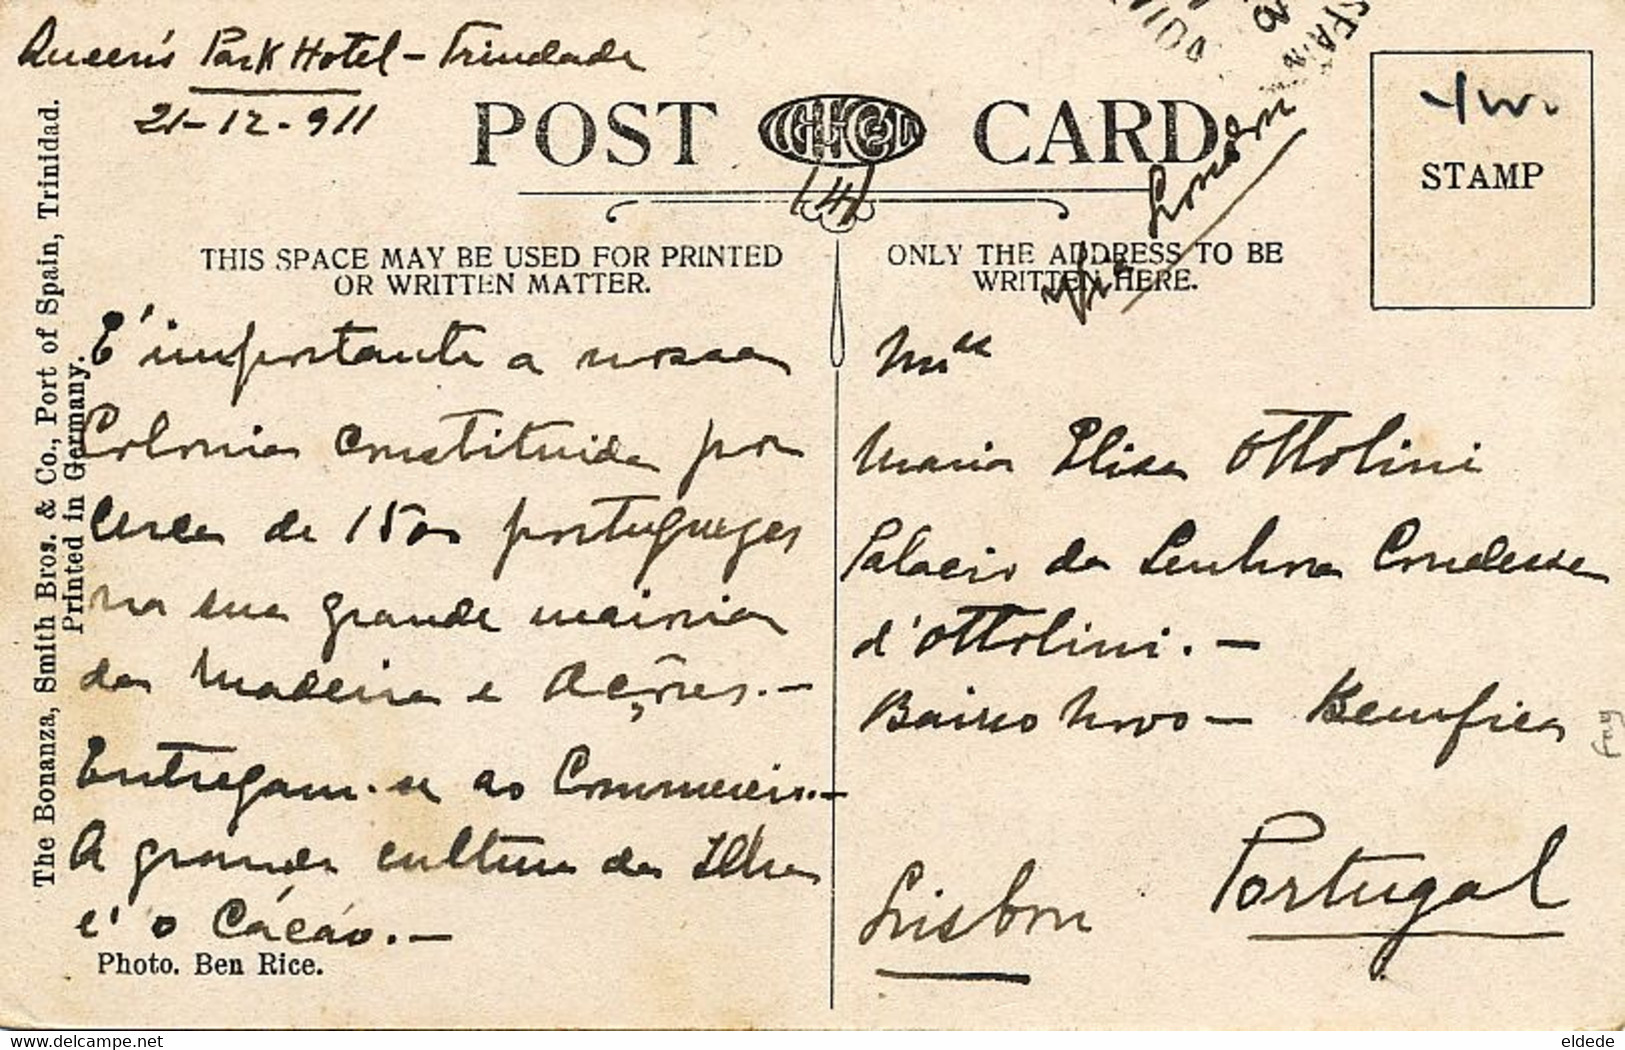 Queen's Park Hotel - Trindade
21-12-911
POST CARD
(4)
STAMP
Via London
THIS SPACE MAY BE USED FOR PRINTED
OR WRITTEN MATTER.
ONLY THE ADDRESS TO BE
WRITTEN HERE.
E' importante a nossa
Colonia constituida por
cerca de 1500 portuguezes
na sua grande maioria
da Madeira e Açôres.-
Entregam-se ao Commercio.-
A grande cultura da Ilha
e' o Cácáo.-
Photo. Ben Rice.
Melle
Maria Elisa Ottolini
Palacio da Senhora Condessa
d'Ottolini.-
Bairro Novo - Bemfica
Lisbon Portugal
The Bonanza, Smith Bros. & Co., Port of Spain, Trinidad.
Printed in Germany.
delcampe.net
eldede